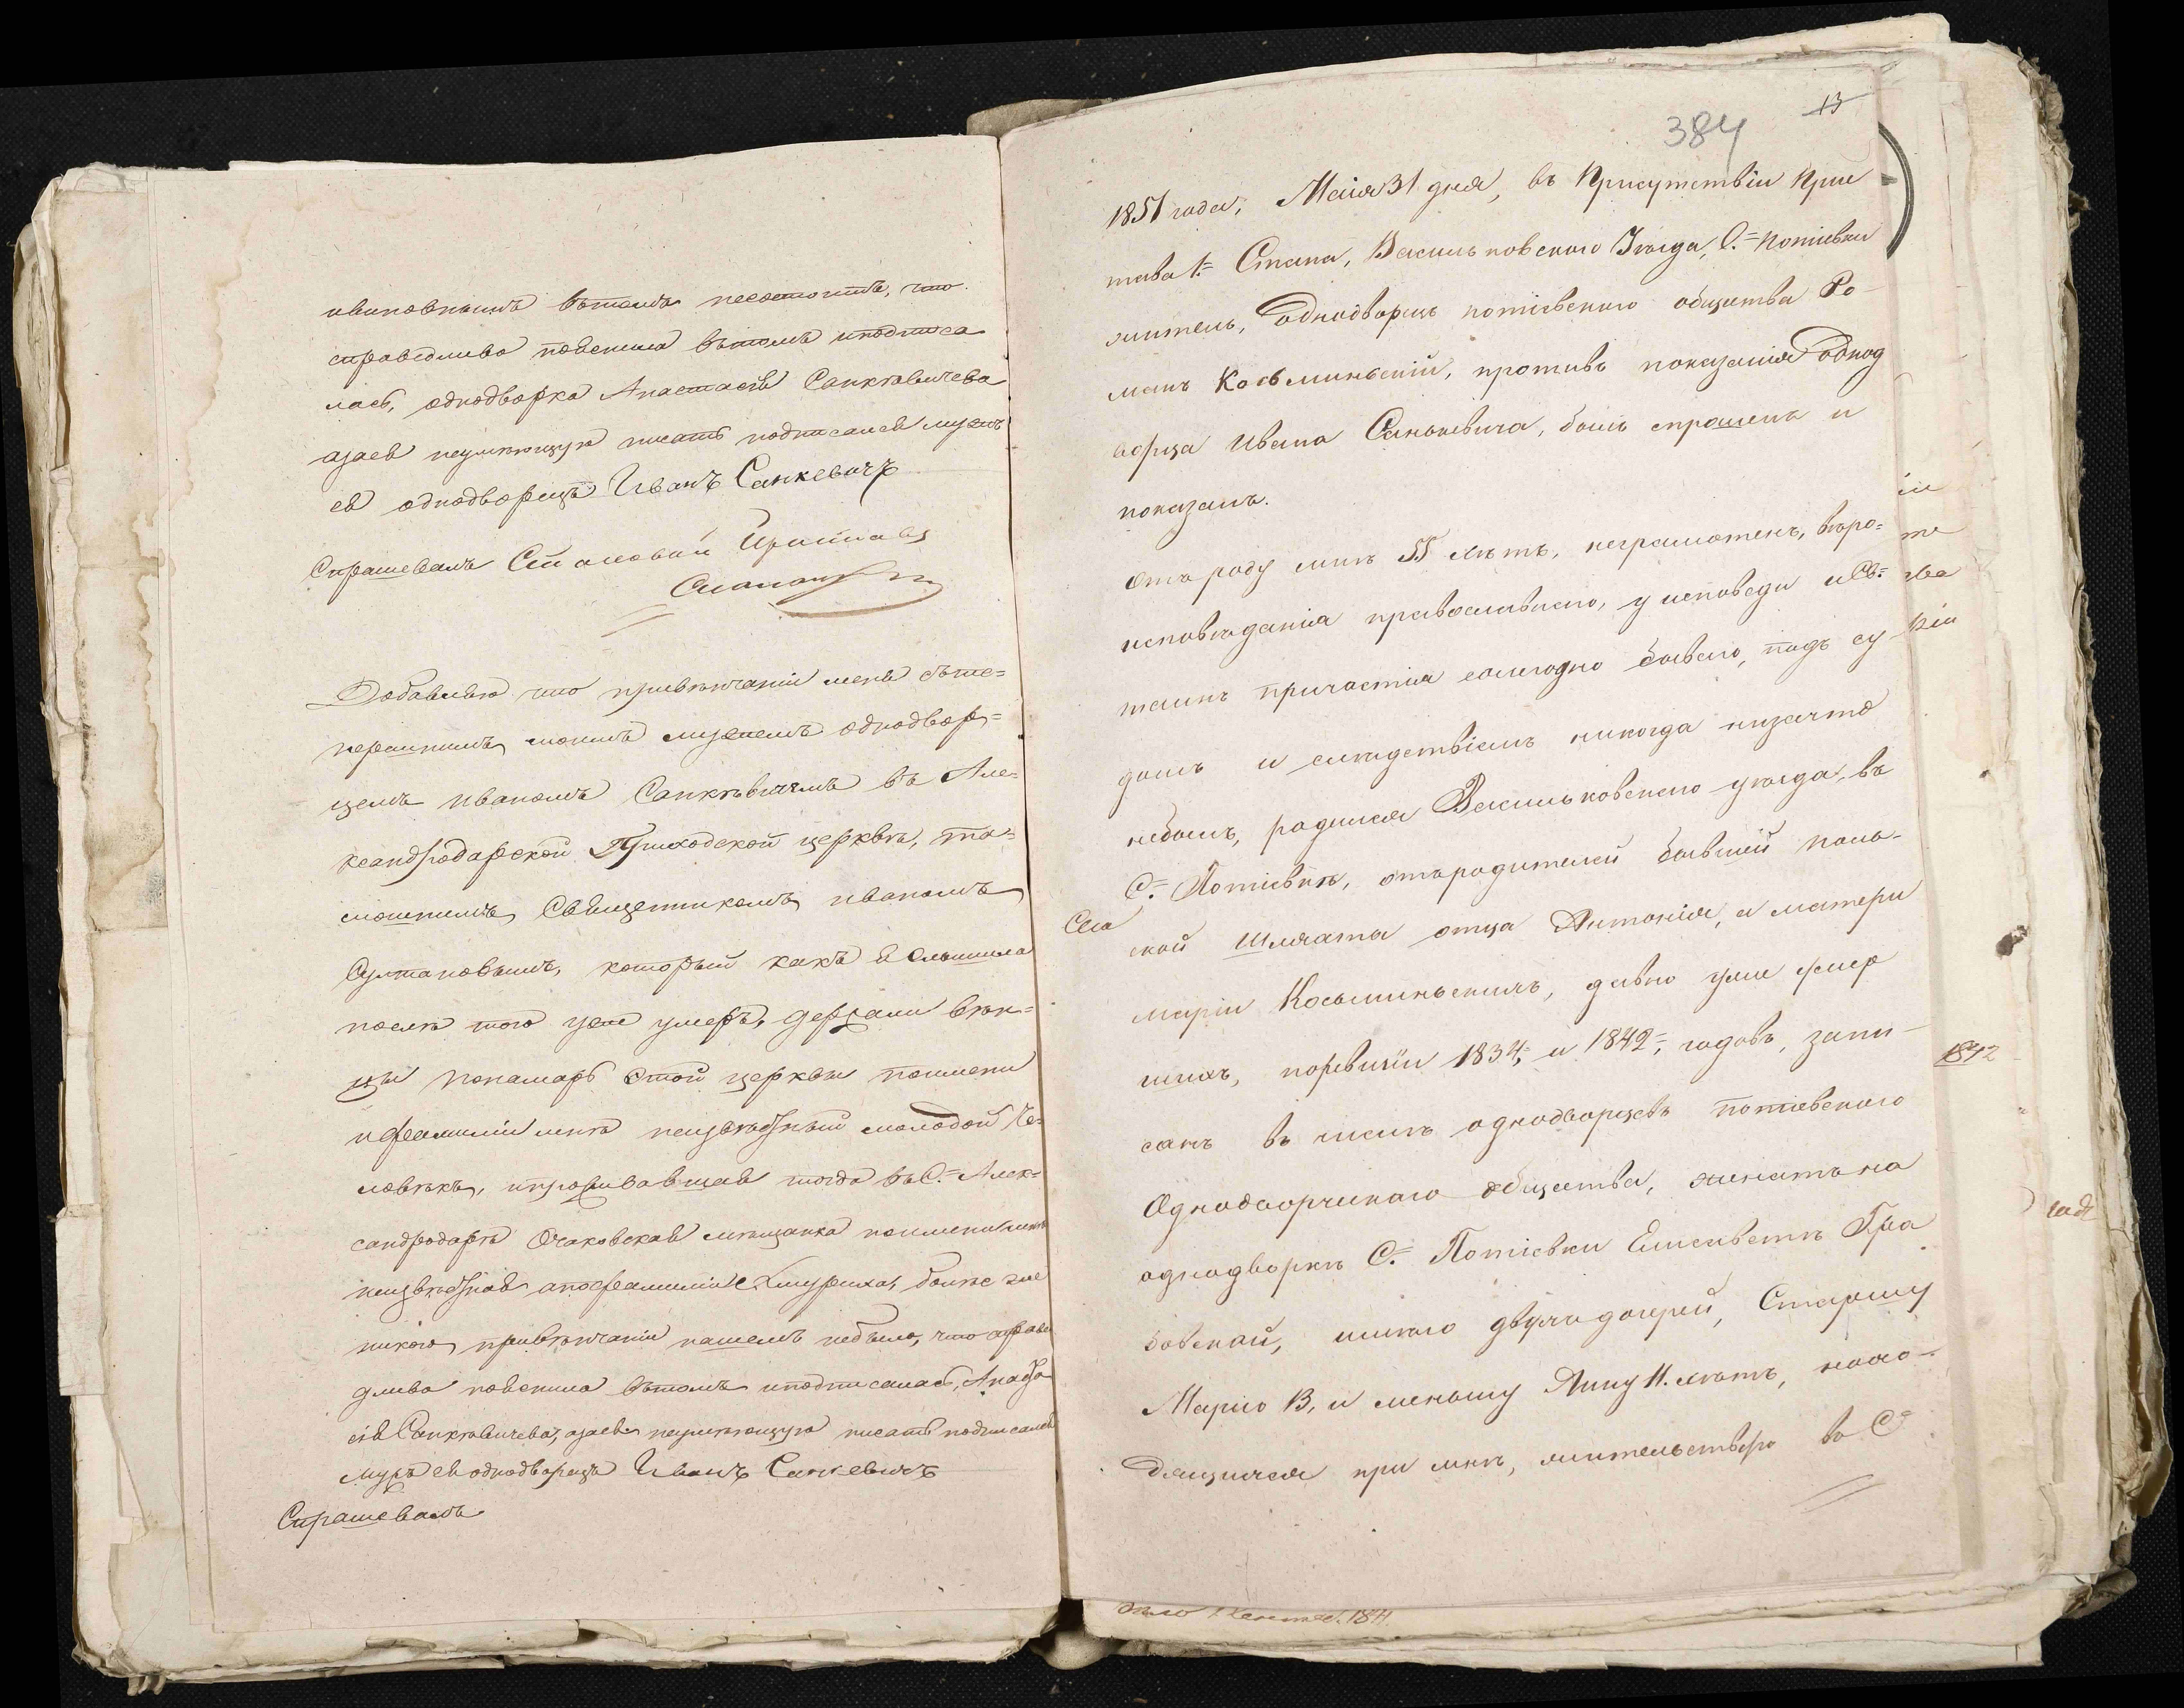 авиновнымъ вътомъ несостоитъ, что
справедливо повенила вътомъ иподписа
лась, однодворка Анастасія Санкѣвичева
азаея неумѣющую писать подписался мужъ
ея однодворецъ Иванъ Санкевичъ
Спрашевалъ Становой Приставъ
Добавляю что привѣнчаніи меня сътe=
перешнимъ моимъ мужемъ однодвор=
цемъ иваномъ Санкѣвичемъ въ Але=
ксандродарской Приходской церквѣ, та=
мошнимъ Священникомъ иваномъ
Султановымъ, который какъ я слышила
послѣ того уже умеръ, держали вѣн=
цы понамарь этой церквы поимени
ифамиліи мнѣ неизвѣстный молодой че=
ловѣкъ, ипроживавшая тогда въ С.= Алек=
сандродарѣ Очаковская мѣщанка поимени мнѣ
неизвѣстная апофамиліи Хмуриха, болѣе же
никого привѣнчаніи нашемъ небыло, что справе
дливо повенила вътомъ иподписалась, Анаста
сія Санкѣвичева, азаея неумѣющую писать подписался
мужъ ея однодворецъ Иванъ Санкевичъ
Спрашевалъ
13
384
1851 года, Маія 31 дня, въ Присутствіи При
става 1.= Стана, Васильковского Уѣзда, С.= Потіевки
житель, Однодворецъ потіевского общества Ро-
манъ Косьминьскій, противъ показанія Однод
ворца Ивана Саньковича, былъ спрошенъ и
показалъ.
Отъ роду мнѣ 55 лѣтъ, неграмотенъ, вѣро=
исповѣданія православного, у исповеди и Св.=
таинъ причастія ежегодно бываю, подъ су
домъ и слѣдствіемъ никогда низачто
небылъ, родился Васильковского уѣзда, въ
С.= Потіевкѣ, отъродителей бывшей поль-
ской Шляхты отца Антонія, а матери
Маріи Косьминьскихъ, давно уже умер
шихъ, поревизіи 1834, и 1842, годовъ, запи-
санъ въ числѣ однодворцевъ потіевского
Однодворческаго общества, женатъ на
однодворкѣ С.= Потіевки Елисаветѣ Гра
бовской, имѣю двухъ дочерей, Старшу
Марію 13, и меньшу Анну 11. лѣтъ, нахо-
дящихся при мнѣ, жительствую въ С.=
1842